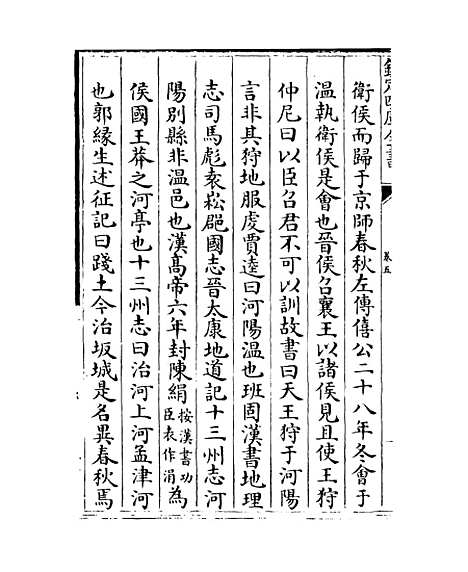 欽定四庫全書
卷五
衛侯而歸于京師春秋左傳僖公二十八年冬會于
温執衛侯是會也晉侯召襄王以諸侯見且使王狩
仲尼曰以臣召君不可以訓故書曰天王狩于河陽
言非其狩地服虔賈逵曰河陽温也班固漢書地理
志司馬彪袁崧郡國志晉太康地道記十三州志河
陽别縣非温邑也漢髙帝六年封陳絹按漢書功臣表作涓為
侯國王莽之河亭也十三州志曰治河上河孟津河
也郭緣生述征記曰踐土今治坂城是名異春秋焉